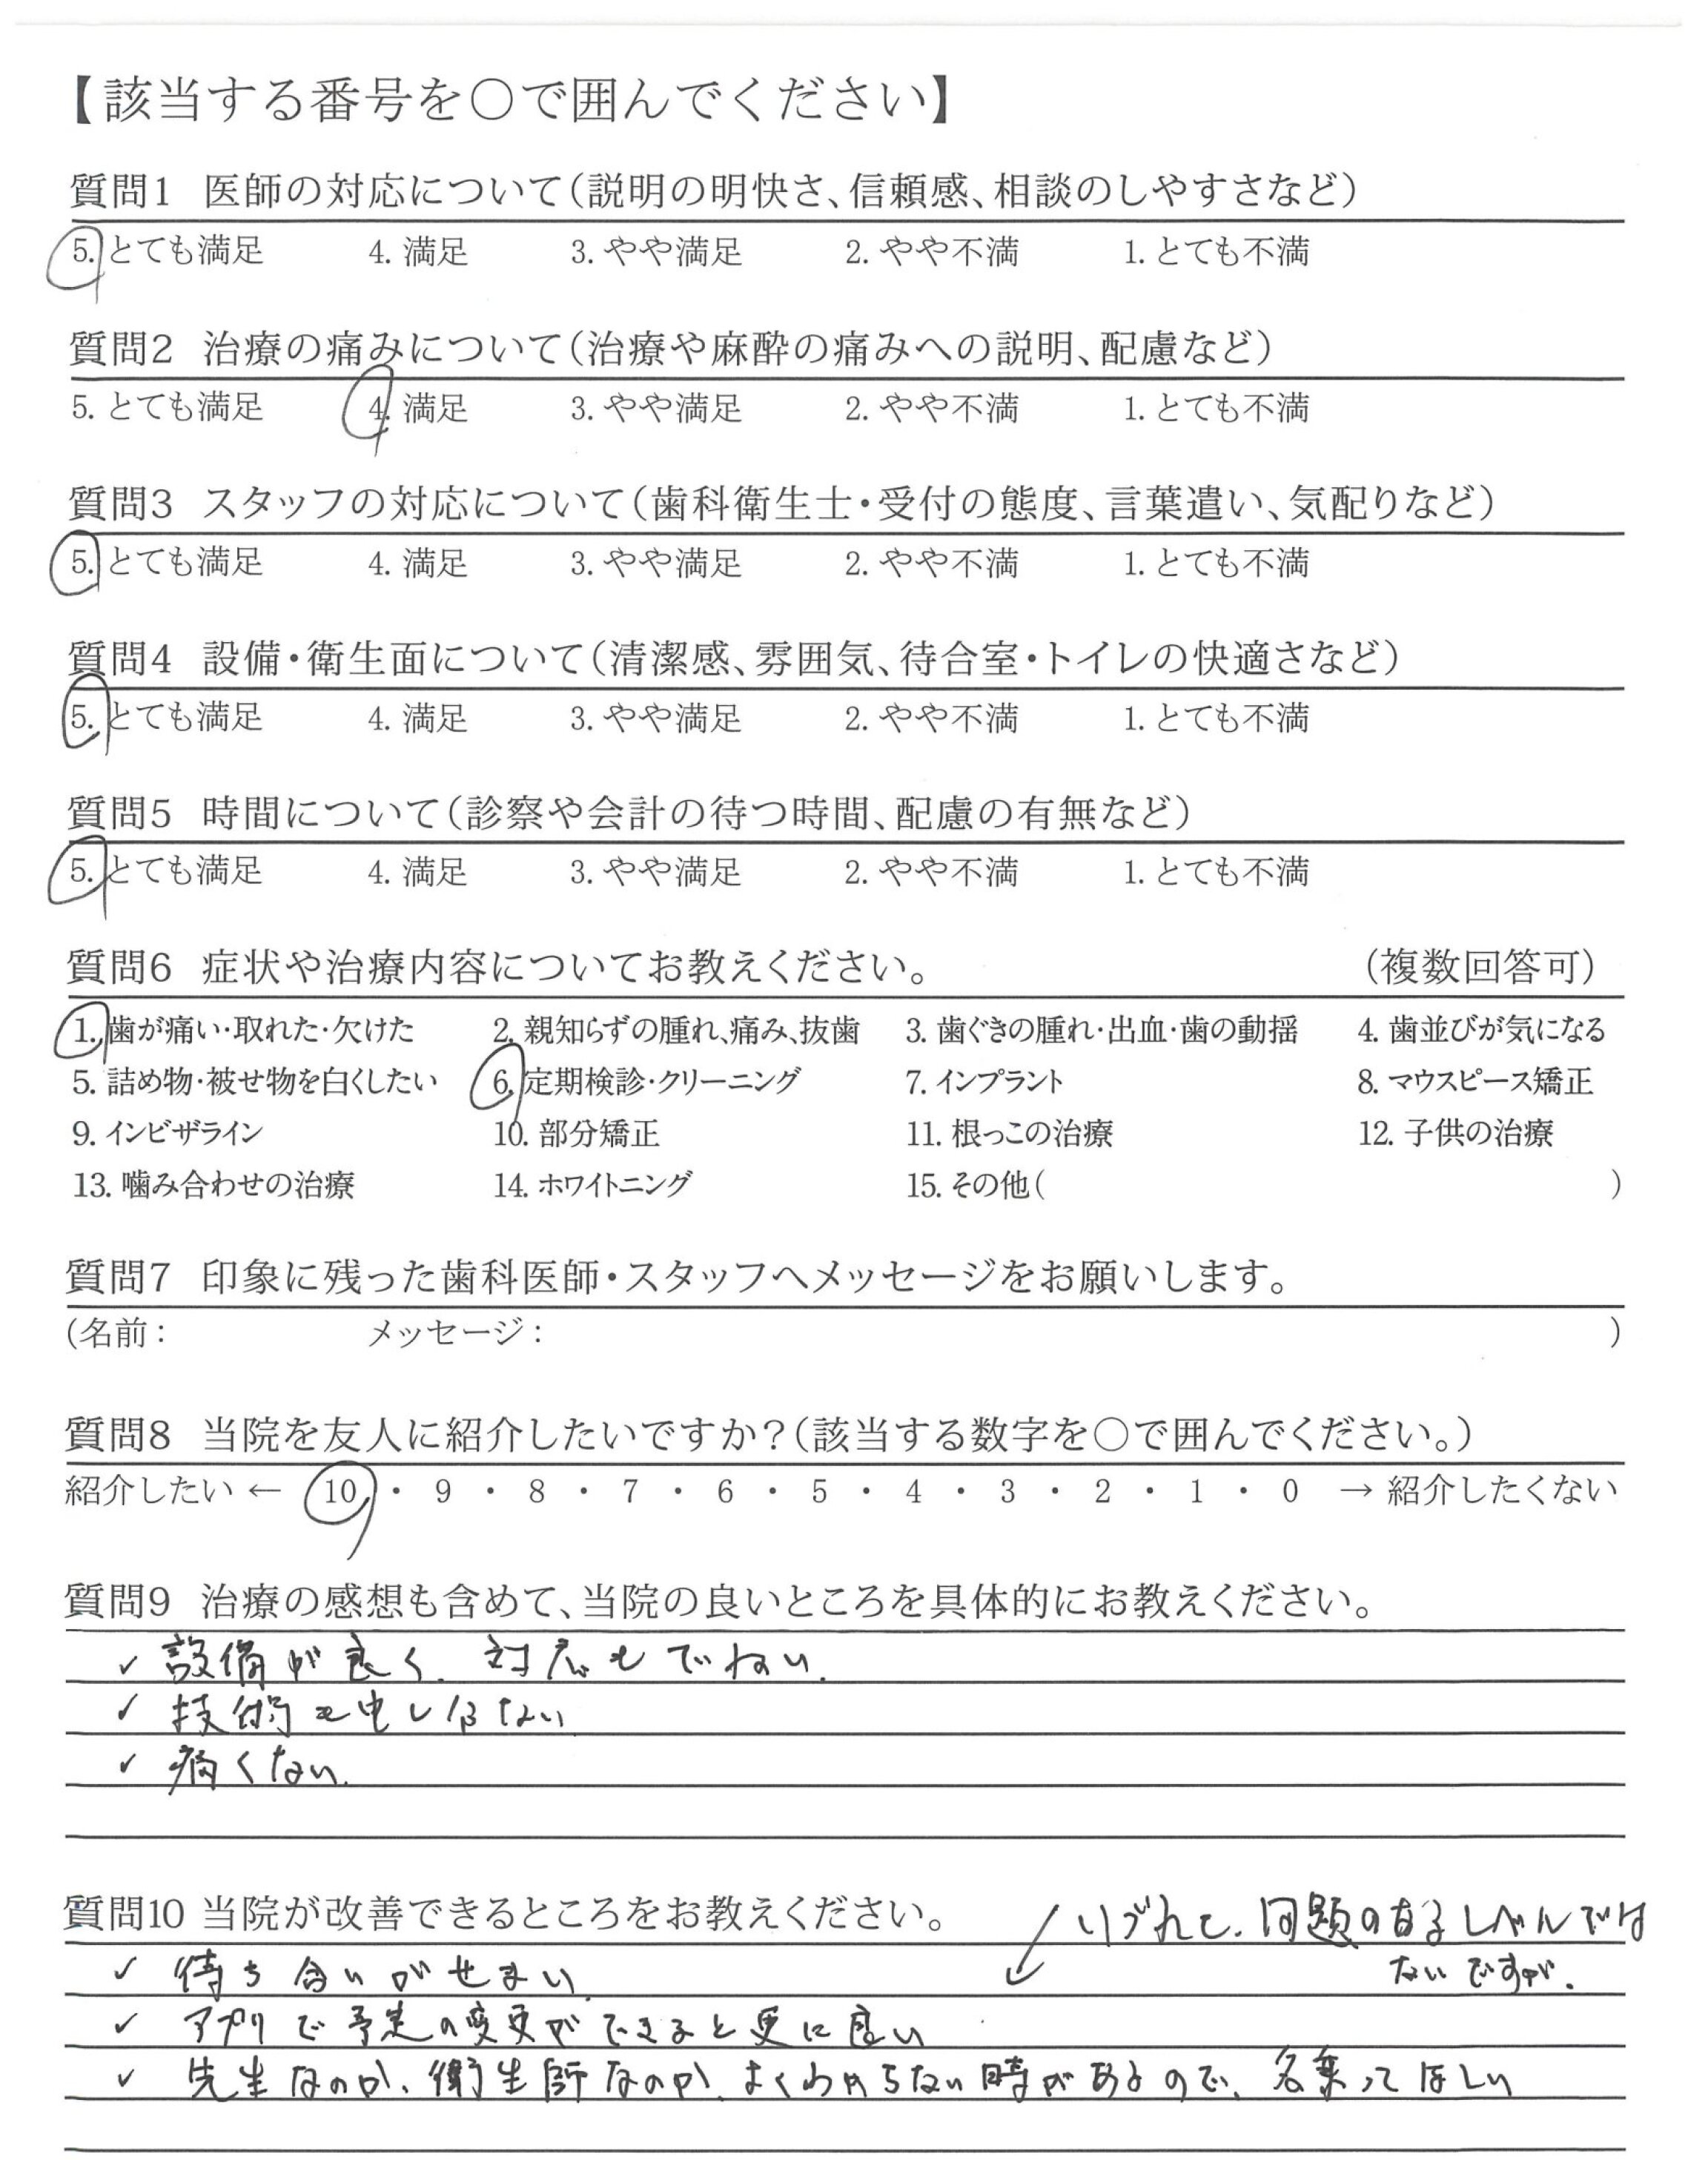 【該当する番号を○で囲んでください】
質問1 医師の対応について(説明の明快さ、信頼感、相談のしやすさなど)
5. とても満足 4. 満足 3. やや満足 2. やや不満 1. とても不満
質問2 治療の痛みについて(治療や麻酔の痛みへの説明、配慮など)
5. とても満足 4. 満足 3. やや満足 2. やや不満 1. とても不満
質問3 スタッフの対応について(歯科衛生士・受付の態度、言葉遣い、気配りなど)
5. とても満足 4. 満足 3. やや満足 2. やや不満 1. とても不満
質問4 設備・衛生面について(清潔感、雰囲気、待合室・トイレの快適さなど)
5. とても満足 4. 満足 3. やや満足 2. やや不満 1. とても不満
質問5 時間について(診察や会計の待つ時間、配慮の有無など)
5. とても満足 4. 満足 3. やや満足 2. やや不満 1. とても不満
質問6 症状や治療内容についてお教えください。 (複数回答可)
1. 歯が痛い・取れた・欠けた 2. 親知らずの腫れ、痛み、抜歯 3. 歯ぐきの腫れ・出血・歯の動揺 4. 歯並びが気になる
5. 詰め物・被せ物を白くしたい 6. 定期検診・クリーニング 7. インプラント 8. マウスピース矯正
9. インビザライン 10. 部分矯正 11. 根っこの治療 12. 子供の治療
13. 噛み合わせの治療 14. ホワイトニング 15. その他( )
質問7 印象に残った歯科医師・スタッフへメッセージをお願いします。
(名前: メッセージ: )
質問8 当院を友人に紹介したいですか?(該当する数字を○で囲んでください。)
紹介したい ← 10 ・ 9 ・ 8 ・ 7 ・ 6 ・ 5 ・ 4 ・ 3 ・ 2 ・ 1 ・ 0 → 紹介したくない
質問9 治療の感想も含めて、当院の良いところを具体的にお教えください。
✓ 設備が良く、対応もていねい.
✓ 技術も申し分ない
✓ 痛くない.
質問10 当院が改善できるところをお教えください。
↙ いづれも、問題のあるレベルでは
ないですが.
✓ 待ち合いがせまい.
✓ アプリで予定の変更ができると更に良い
✓ 先生なのか、衛生師なのか、よくわからない時があるので、名乗ってほしい